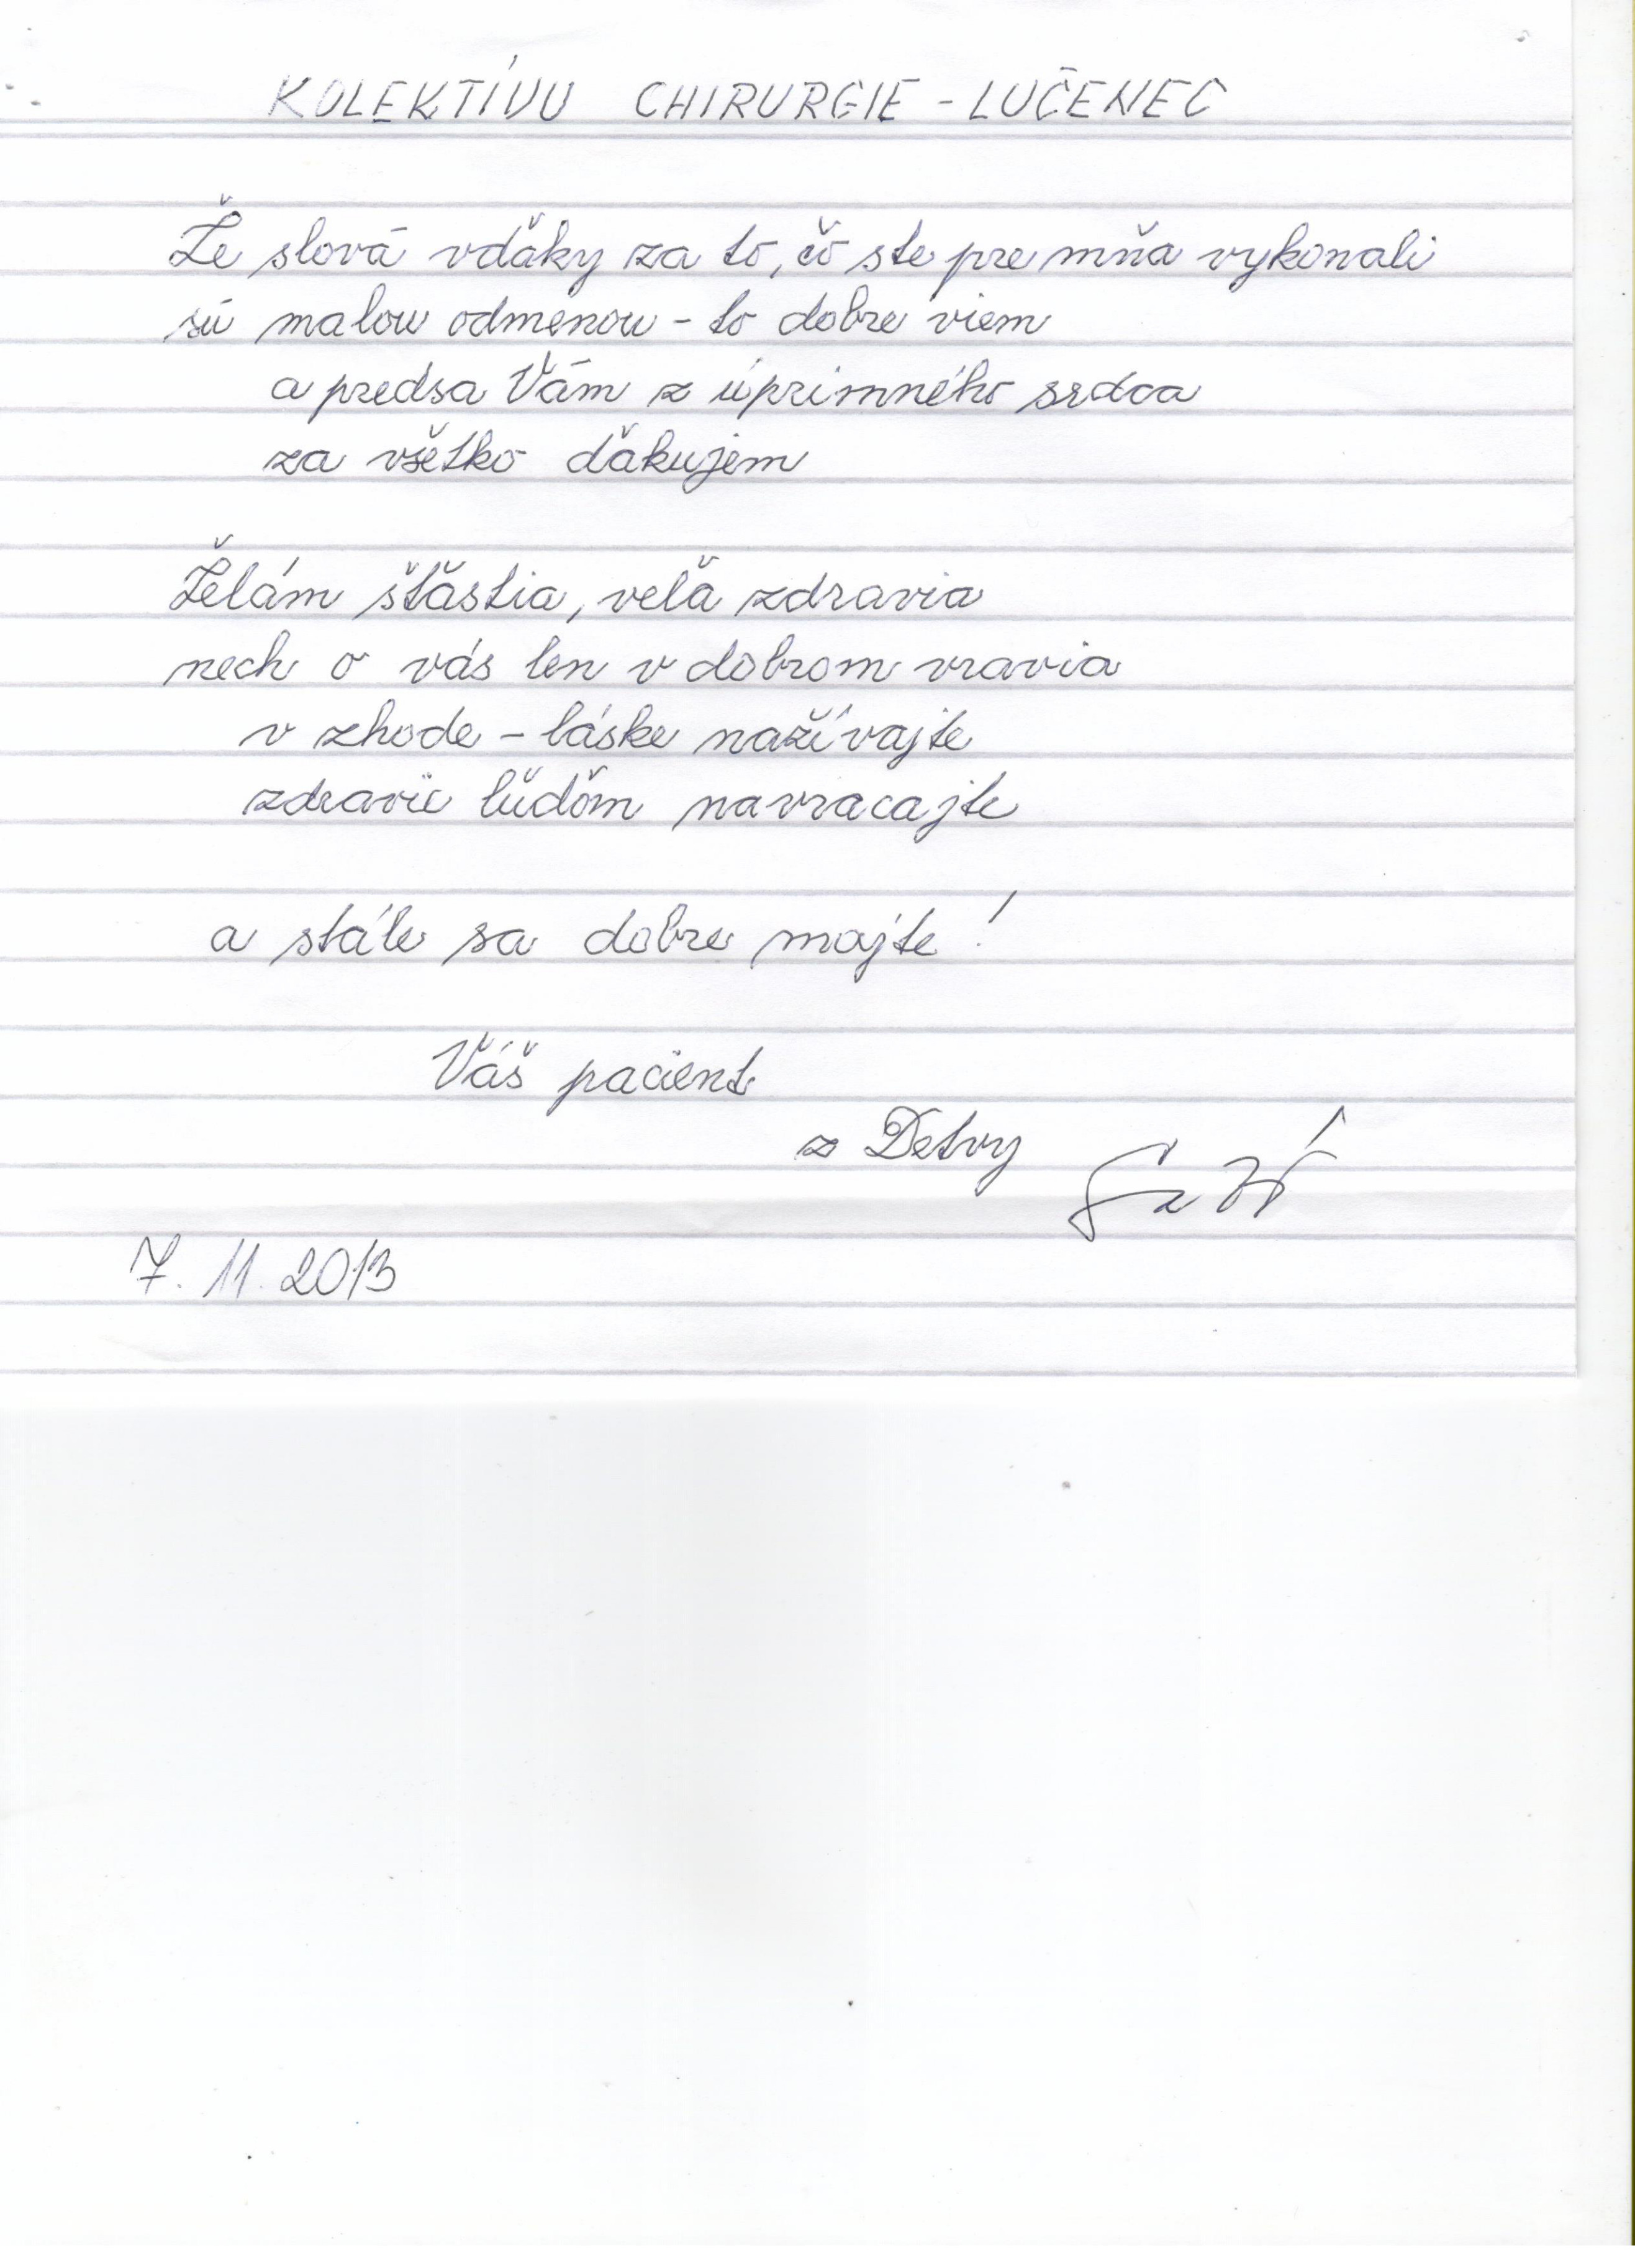 KOLEKTÍVU CHIRURGIE - LUČENEC
Že slová vďaky za to, čo ste pre mňa vykonali
sú malou odmenou - to dobre viem
a predsa Vám z úprimného srdca
za všetko ďakujem
Želám šťastia, veľa zdravia
nech o vás len v dobrom vravia
v zhode - láske nažívajte
zdravie ľuďom navracajte
a stále sa dobre majte!
Váš pacient
z Detvy
7. 11. 2013